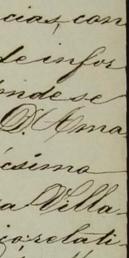 cias, con
de infor
onde se
D. Ama
ísimo
a Villa-
io relati-